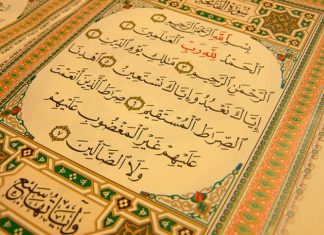 بِسْمِ اللَّهِ الرَّحْمَنِ الرَّحِيمِ
الْحَمْدُ لِلَّهِ رَبِّ الْعَالَمِينَ
الرَّحْمَنِ الرَّحِيمِ مَلِكِ يَوْمِ الدِّينِ
إِيَّاكَ نَعْبُدُ وَإِيَّاكَ نَسْتَعِينُ اهْدِنَا
الصِّرَاطَ الْمُسْتَقِيمَ صِرَاطَ الَّذِينَ أَنْعَمْتَ
عَلَيْهِمْ غَيْرِ الْمَغْضُوبِ عَلَيْهِمْ
وَلَا الضَّالِّينَ